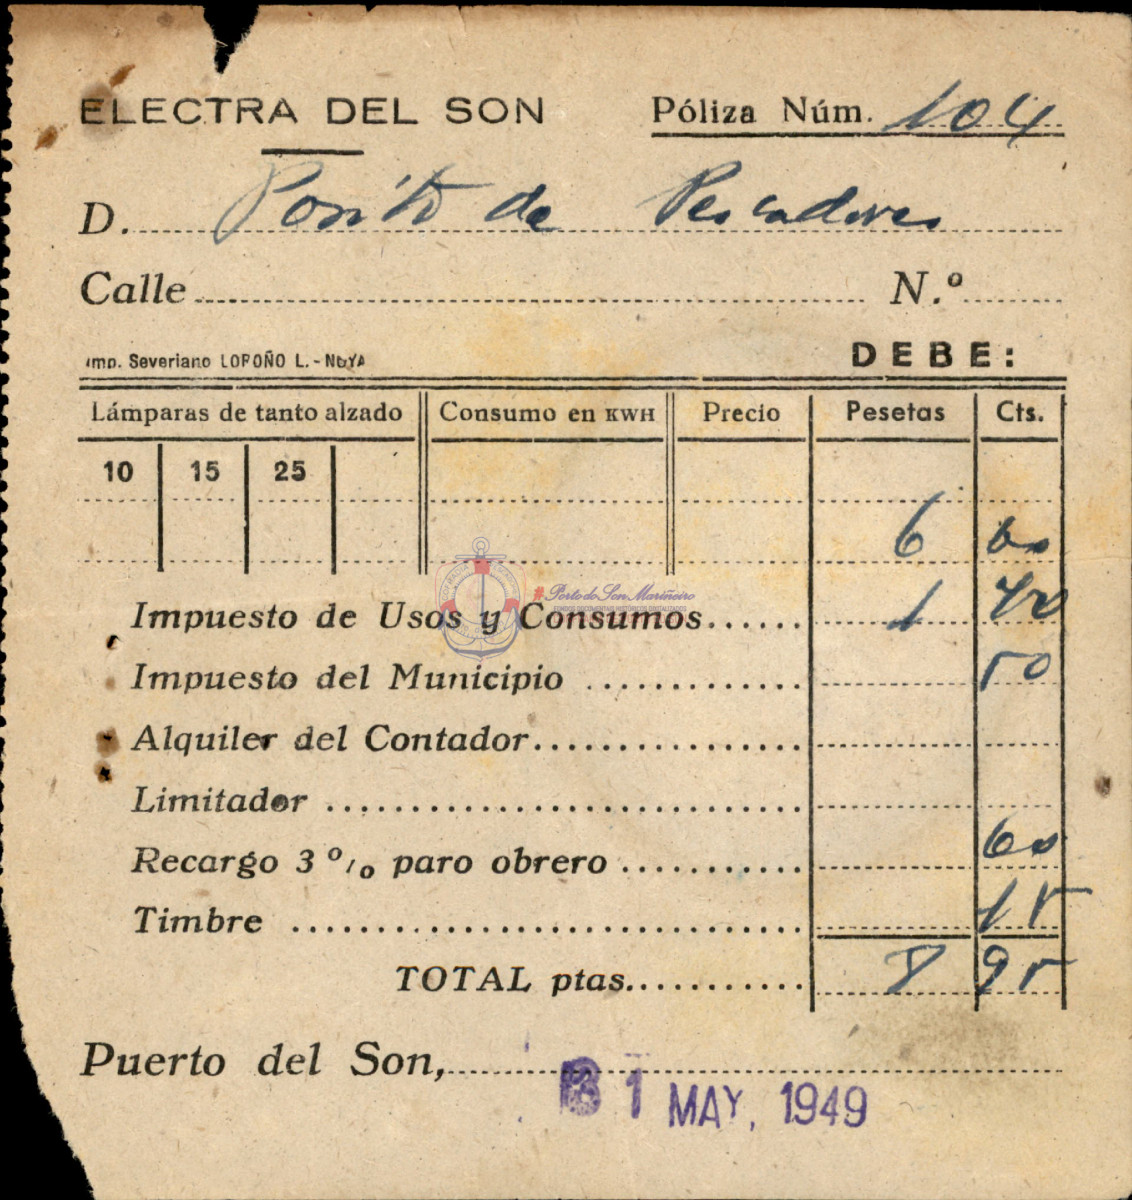 ELECTRA DEL SON Póliza Núm. 104
D. Posito de Pescadores
Calle N.º
Imp. Severiano LOROÑO L. - NOYA
DEBE:
Lámparas de tanto alzado Consumo en KWH Precio Pesetas Cts.
10 15 25
6 60
Impuesto de Usos y Consumos 1
Impuesto del Municipio 50
Alquiler del Contador
Limitador
Recargo 3 % paro obrero
Timbre 15
TOTAL ptas. 8 95
Puerto del Son,
31 MAY. 1949
#PortodoSonMariñeiro